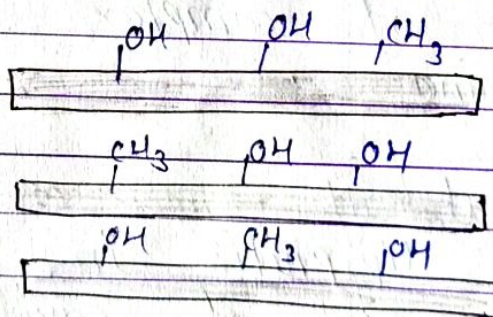 OH OH CH3
CH3 OH OH
OH CH3 OH